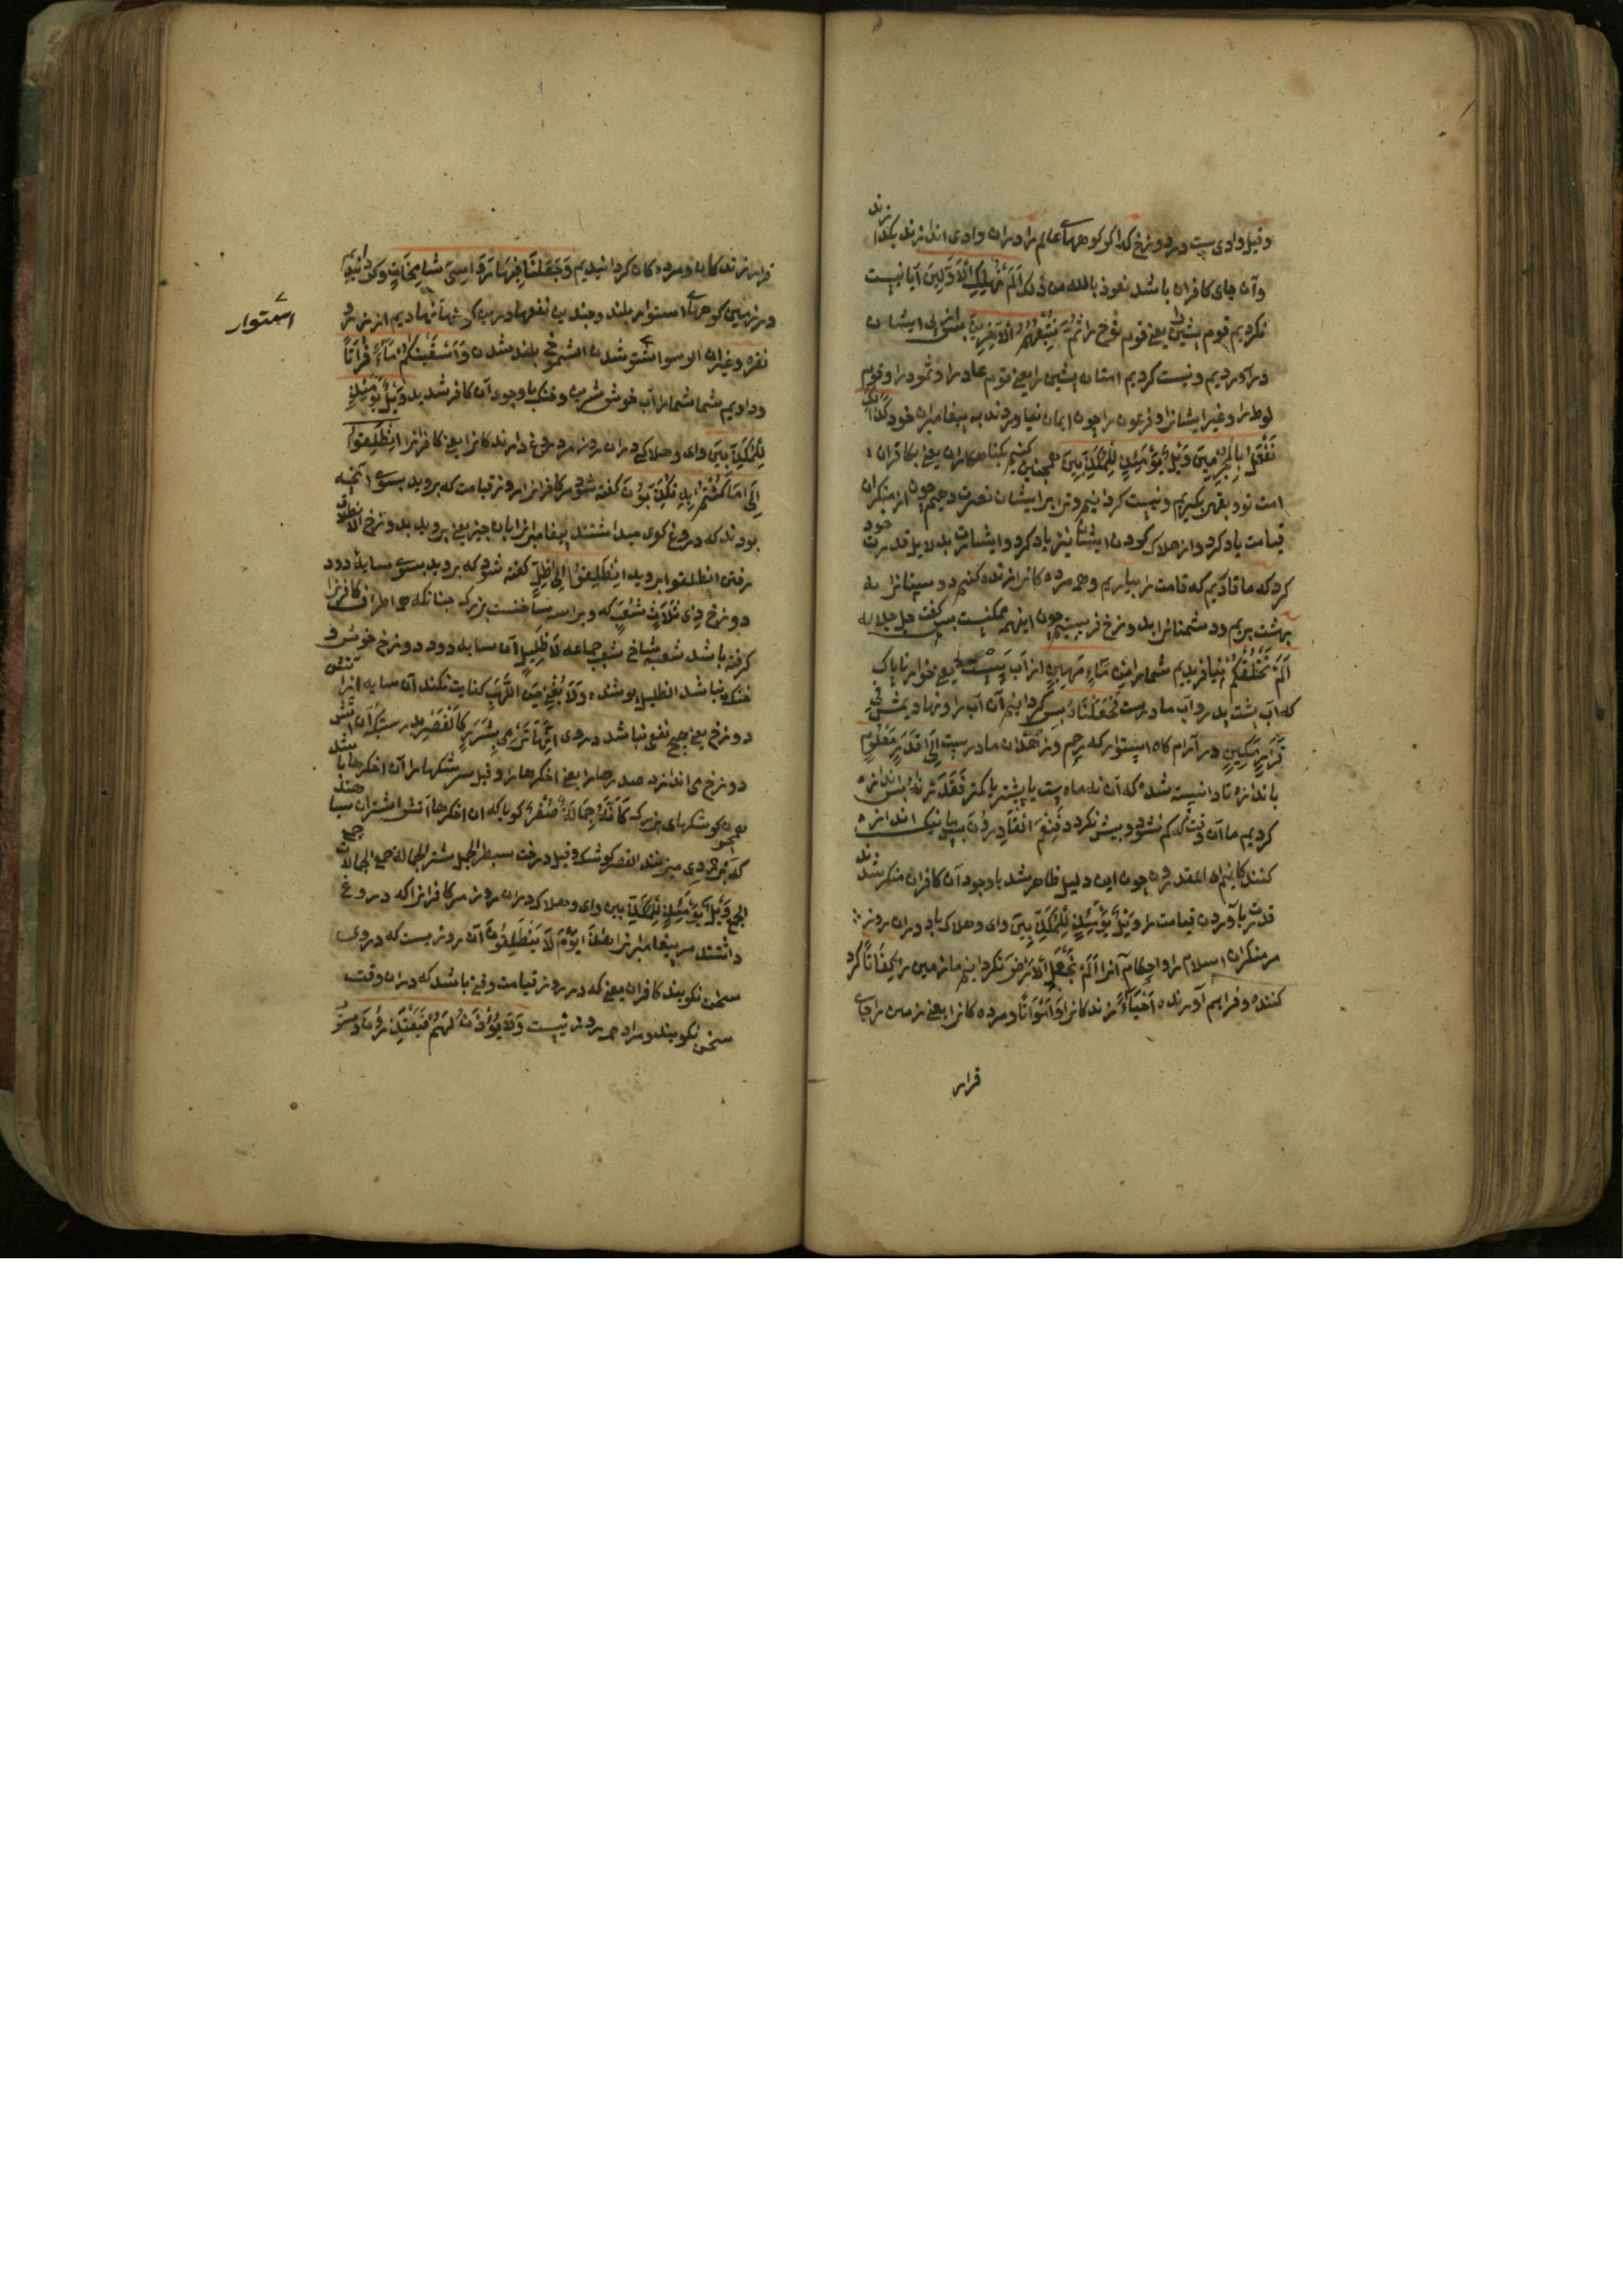 وقیل وادی یست در دوزخ که اگر کوهها عالم را در ان وادی اندازند بگدازند
وآن جای کافران باشد نعوذ بالله من ذلک اَلَمْ نُهْلِکِ الْاَوَّلِینَ آیا نیست
نکردیم قوم پیشین را یعنی قوم نوح را ثُمَّ نُتْبِعُهُمُ الْآخِرِینَ پس از پی ایشان
در آوردیم ونیست کردیم امتان پشین را یعنی قوم عاد را وثمود را وقوم
لوط را وغیر ایشانرا وفرعون را چون ایمان نیاوردند به پیغامبران خود کَذٰلِکَ
نَفْعَلُ بِالْمُجْرِمِینَ وَیْلٌ یَوْمَئِذٍ لِلْمُکَذِّبِینَ همچنین کنیم بکناهکاران یعنی بکافران
امت تو و بقهر بکیریم ونیست کردانیم وترا بر ایشان نصرت دهیم چون از منکران
قیامت یاد کرد واز هلاک کردن ایشان نیز یاد کرد و ایشانرا بدلایل قدرت خود
کرد که ما قادریم که قیامت را بیاریم وهمه مرده کانرا زنده کنیم دوستانرا به
بهشت بریم ودشمنانرا بدوزخ فرستیم چون اینهمه ممکنست پس گفت جل جلاله
اَلَمْ نَخْلُقْکُمْ نیافریدیم شمارا مِنْ مَاءٍ مَهِینٍ از آب پست یعنی خوار ناپاک
که آب پشت پدر وآب مادرست فَجَعَلْنَاهُ پس کردانیم آن آب را ونهادیمش فِی
قَرَارٍ مَکِینٍ در آرام کاه استوار که رحم وزهدان مادرست اِلَی قَدَرٍ مَعْلُومٍ
باندازه تا دانسته شده که آن نه ماه است یا بیشتر یا کمتر فَقَدَرْنَا پس اندازه
کردیم ما آن وقت که کم نشود وبیش نکردد فَنِعْمَ الْقَادِرُونَ پس ما نیک اندازه
کنندکانیم ای المقدرون چون این دلیل ظاهر شد باوجود آن کافران منکر شدند
قدرت باآوردن قیامت را وَیْلٌ یَوْمَئِذٍ لِلْمُکَذِّبِینَ وای وهلاک باد در ان روز
مر منکران اسلام را واحکام آنرا اَلَمْ نَجْعَلِ الْاَرْضَ نکردانیم ما زمین را کِفَاتًا کرد
کننده وفراهم آورنده اَحْیَاءً زنده کانرا وَاَمْوَاتًا ومرده کانرا یعنی زمین را جای
قرار
قرار زنده کان ومرده کان کردانیدیم وَجَعَلْنَا فِیهَا رَوَاسِیَ شَامِخَاتٍ وکردانیدیم
در زمین کوهها استوار بلند وچندین نفعها درین کوهها نهادیم از زر و
استوار
نقره وغیران الرسو استوار شدن الشموخ بلند شدن وَاَسْقَیْنَاکُمْ مَاءً فُرَاتًا
ودادیم شما شمارا آب خوش شیرین وخنک باوجود آن کافر شدید وَیْلٌ یَوْمَئِذٍ
لِلْمُکَذِّبِینَ وای وهلاکی در ان روز مر دروغ دارنده کانرا یعنی کافرانرا اِنْطَلِقُوا
اِلَی مَا کُنْتُمْ بِهِ تُکَذِّبُونَ کفته شود مر کافرانرا در روز قیامت که بروید بسوی آنچه
بودید که دروغ کوی میداشتند پیغامبرانرا بان چیز یعنی بروید بدوزخ الانطلاق
رفتن انطلقوا بروید اِنْطَلِقُوا اِلَی ظِلٍّ کفته شود که بروید بسوی سایهٔ دود
دوزخ ذِی ثَلَاثِ شُعَبٍ که ویرا سه شاخست بزرک چنانکه همه اطراف کافرانرا
کرفته باشد شعبه شاخ شعب جماعه لَا ظَلِیلٍ آن سایه دود دوزخ خوش و
خنک نباشد الظلیل پوشنده وَلَا یُغْنِی مِنَ اللَّهَبِ کفایت نکند آن سایه از آتش
دوزخ یعنی هیچ نفعی نباشد در وی اِنَّهَا تَرْمِی بِشَرَرٍ کَالْقَصْرِ بدرستی که آن آتش
دوزخ می اندازد صدرها را یعنی اخکرها را وقیل سرشکها را آن اخکرها باشد
همچون کوشکهای بزرک کَاَنَّهُ جِمَالَةٌ صُفْرٌ کویا که ان اخکرها آتش اشتران سیاهند
که بزردی میزنند القصر کوشک وقیل درخت سطبر الجمل شتر الجمالة جمع الجمالات جمع
الجمع وَیْلٌ یَوْمَئِذٍ لِلْمُکَذِّبِینَ وای وهلاک در ان روز مر کافرانرا که دروغ
داشتند مر پیغامبرانرا هٰذَا یَوْمُ لَا یَنْطِقُونَ آن روز یست که در وی
سخن نکویند کافران یعنی که در روز قیامت وقتی باشد که در ان وقت
سخن نکویند ومراد همه روز نیست وَلَا یُؤْذَنُ لَهُمْ فَیَعْتَذِرُونَ ودستور